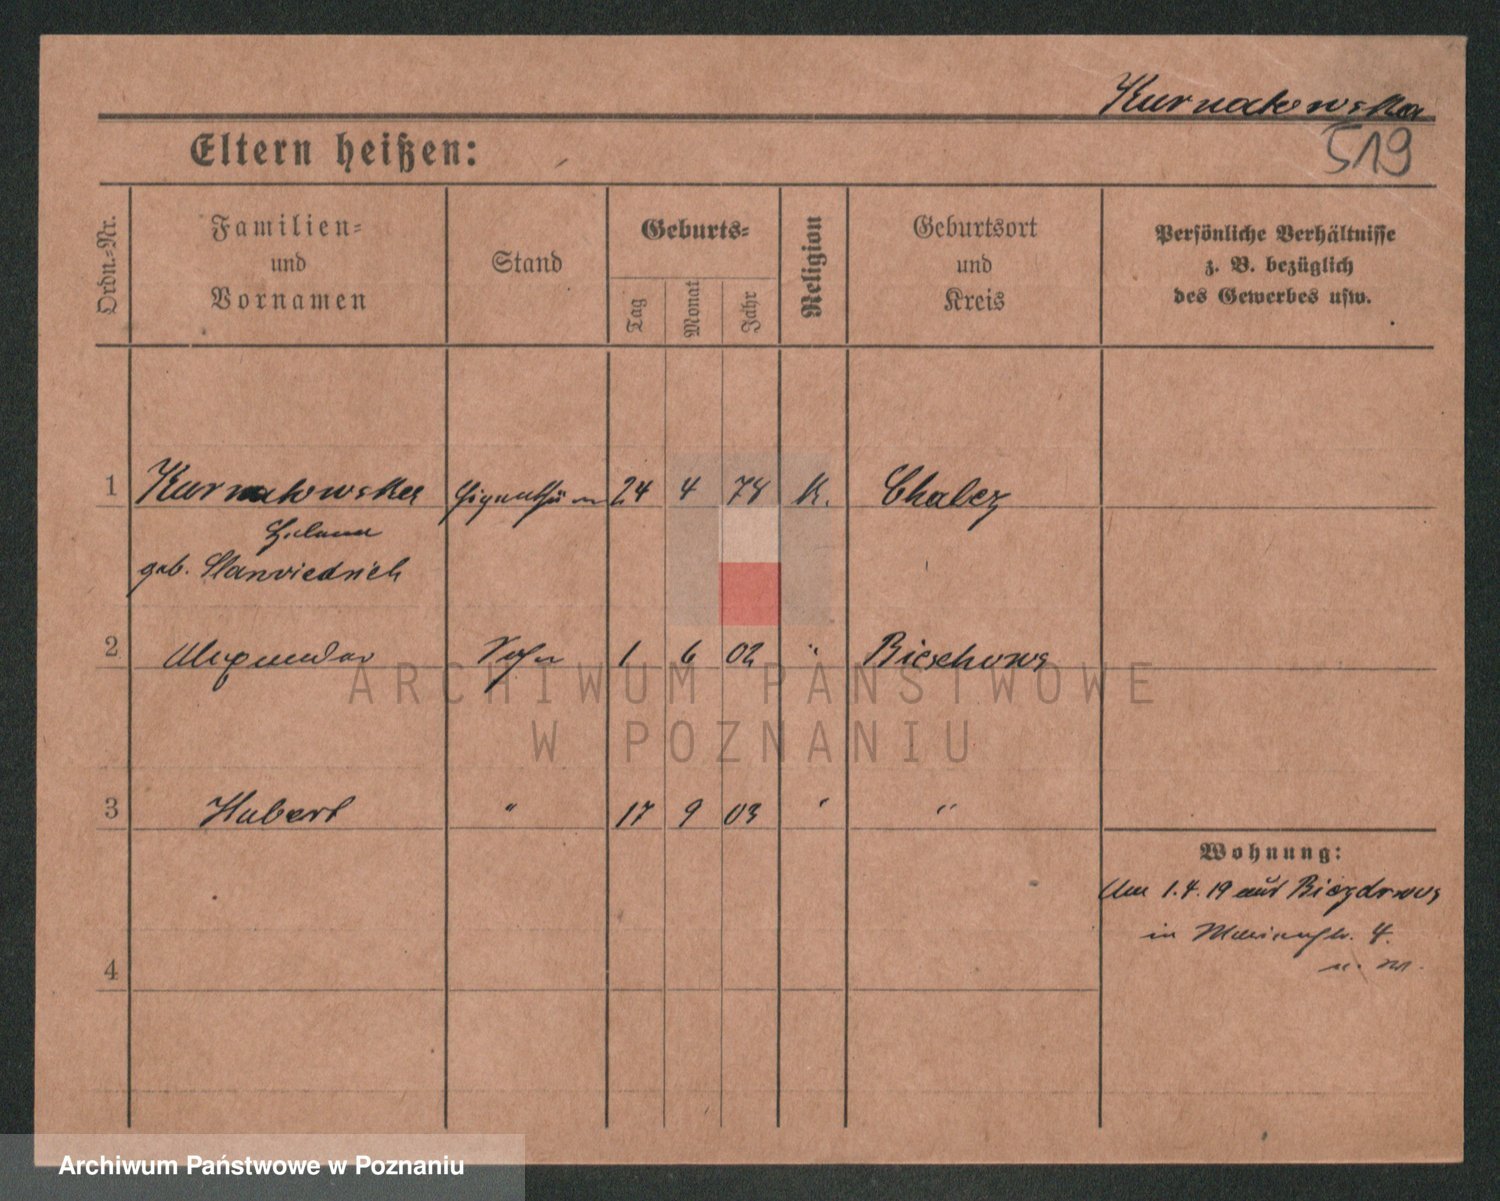 Kurnatowska
519
Eltern heißen:
Ordn.-Nr.
Familien-
und
Vornamen
Stand
Geburts-
Tag
Monat
Jahr
Religion
Geburtsort
und
Kreis
Persönliche Verhältnisse
z. B. bezüglich
des Gewerbes usw.
1 Kurnatowska Eigenthüm 24 4 78 K. Chalcz
geb.
2 Alexander Sohn 1 6 02 "
3 Hubert " 17 9 03 " "
Wohnung:
Um 1.4.19 aus Biezdrowo
in 4.
4
ARCHIWUM PAŃSTWOWE
W POZNANIU
Archiwum Państwowe w Poznaniu